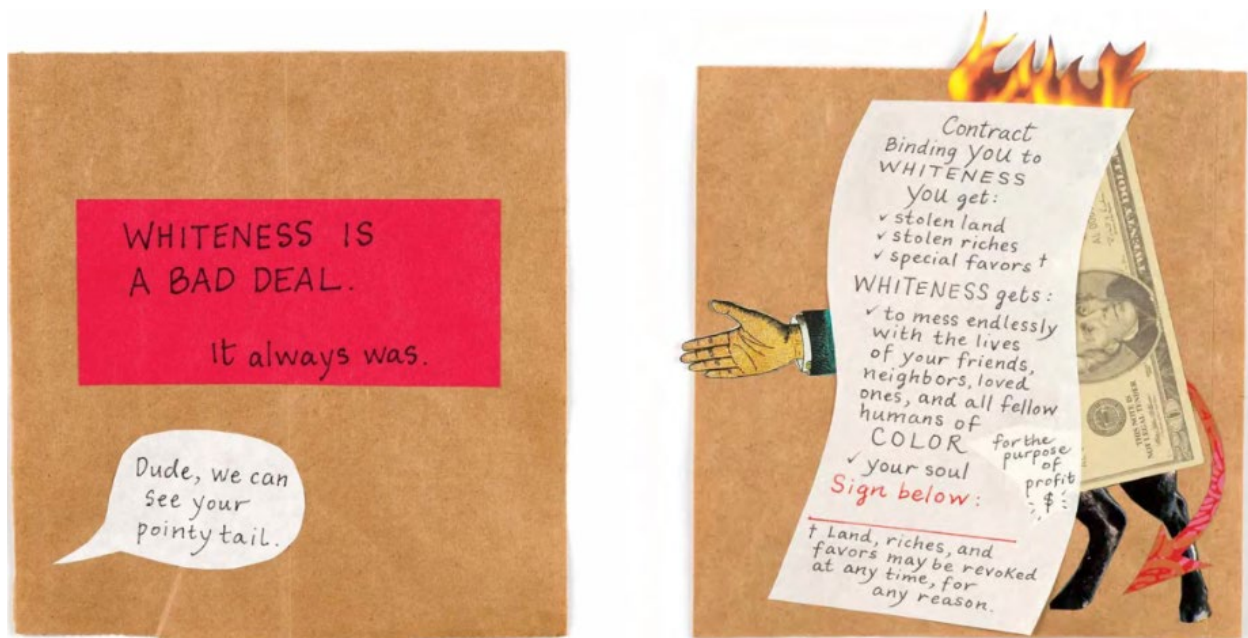 WHITENESS IS
A BAD DEAL.
It always was.
Dude, we can
see your
pointy tail.
Contract
Binding YOU to
WHITENESS
You get:
✓ stolen land
✓ stolen riches
✓ special favors †
WHITENESS gets:
✓ to mess endlessly
with the lives
of your friends,
neighbors, loved
ones, and all fellow
humans of
COLOR
✓ your soul
Sign below:
for the
purpose
of
profit
$
† Land, riches, and
favors may be revoked
at any time, for
any reason.
THIS NOTE IS
NOT LEGAL TENDER